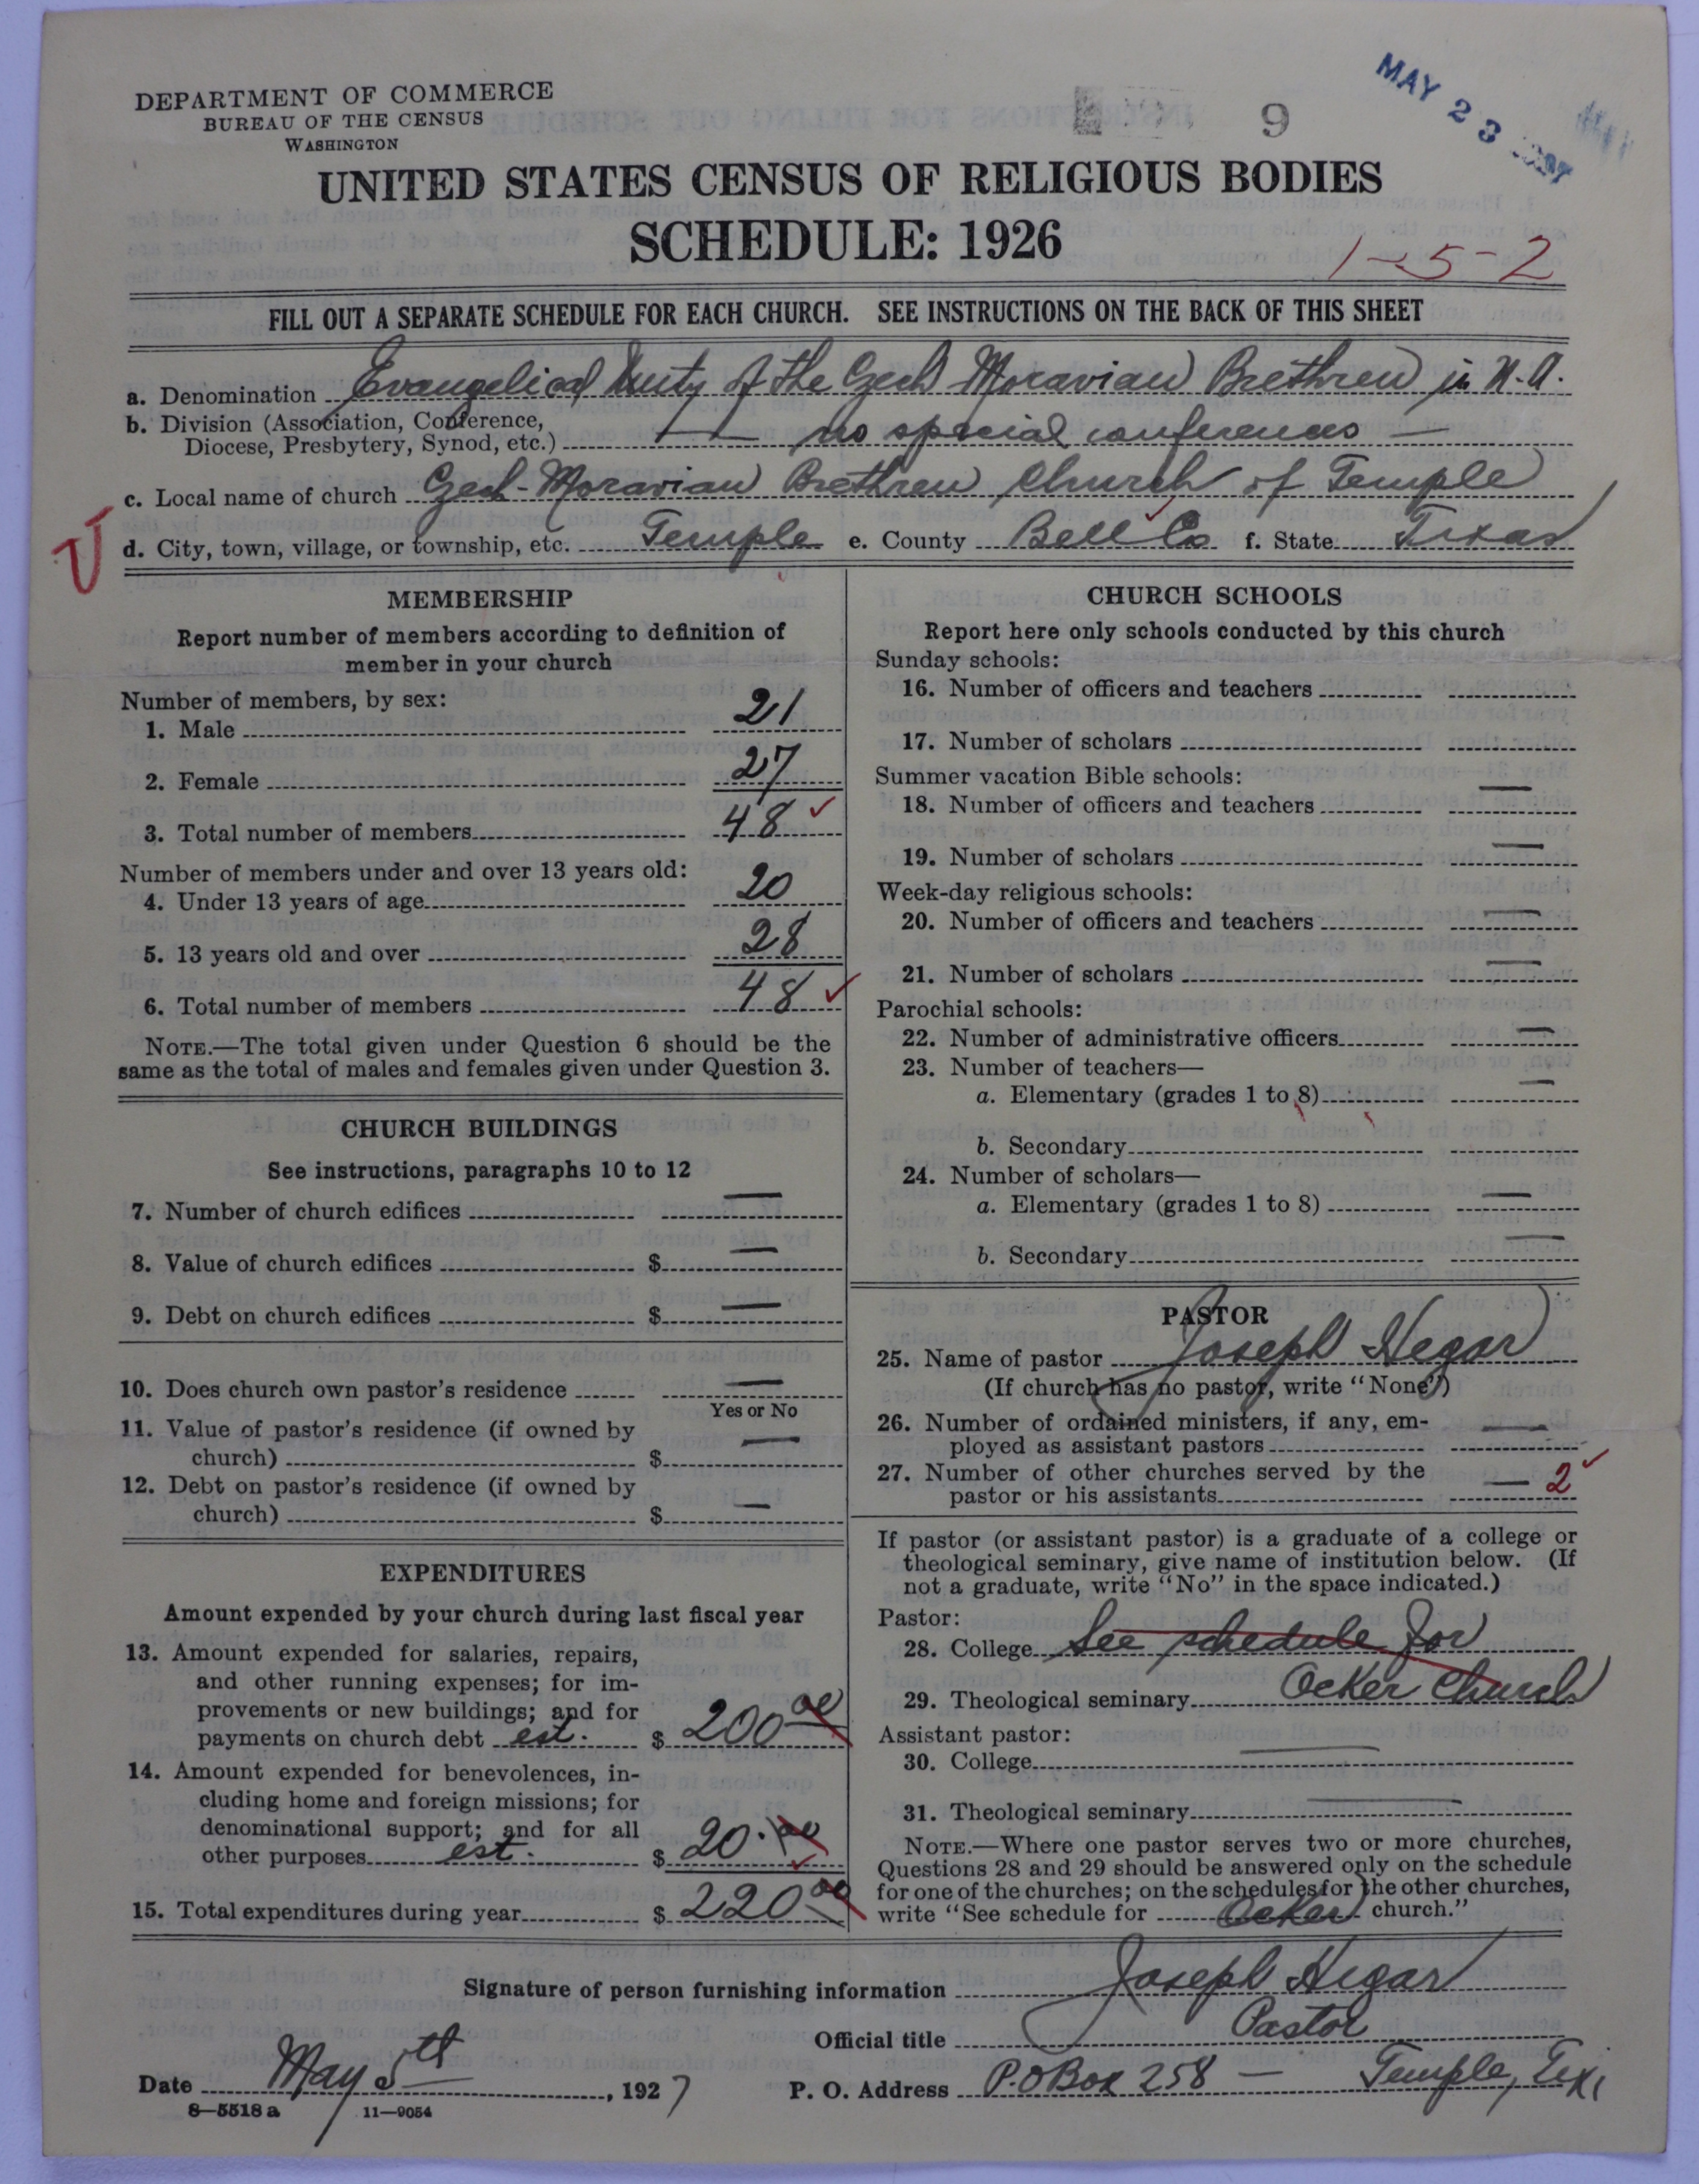 DEPARTMENT OF COMMERCE
BUREAU OF THE CENSUS
WASHINGTON
9
MAY 23
UNITED STATES CENSUS OF RELIGIOUS BODIES
SCHEDULE: 1926
1-5-2
FILL OUT A SEPARATE SCHEDULE FOR EACH CHURCH. SEE INSTRUCTIONS ON THE BACK OF THIS SHEET
a. Denomination Evangelical Unity of the Czech Moravian Brethren in N.A.
b. Division (Association, Conference,
Diocese, Presbytery, Synod, etc.) — no special conferences —
c. Local name of church Czech-Moravian Brethren Church of Temple
d. City, town, village, or township, etc. Temple e. County Bell Co f. State Texas
MEMBERSHIP
Report number of members according to definition of
member in your church
Number of members, by sex:
1. Male 21
2. Female 27
3. Total number of members 48 ✓
Number of members under and over 13 years old:
4. Under 13 years of age 20
5. 13 years old and over 28
6. Total number of members 48 ✓
NOTE.—The total given under Question 6 should be the
same as the total of males and females given under Question 3.
CHURCH BUILDINGS
See instructions, paragraphs 10 to 12
7. Number of church edifices —
8. Value of church edifices $ —
9. Debt on church edifices $ —
10. Does church own pastor's residence —
Yes or No
11. Value of pastor's residence (if owned by
church) $ —
12. Debt on pastor's residence (if owned by
church) $ —
EXPENDITURES
Amount expended by your church during last fiscal year
13. Amount expended for salaries, repairs,
and other running expenses; for im-
provements or new buildings; and for
payments on church debt est. $ 200 00
14. Amount expended for benevolences, in-
cluding home and foreign missions; for
denominational support; and for all
other purposes est. $ 20.00
15. Total expenditures during year $ 220 00
CHURCH SCHOOLS
Report here only schools conducted by this church
Sunday schools:
16. Number of officers and teachers
17. Number of scholars
Summer vacation Bible schools:
18. Number of officers and teachers —
19. Number of scholars —
Week-day religious schools:
20. Number of officers and teachers —
21. Number of scholars —
Parochial schools:
22. Number of administrative officers —
23. Number of teachers—
a. Elementary (grades 1 to 8) —
b. Secondary
24. Number of scholars—
a. Elementary (grades 1 to 8) —
b. Secondary —
PASTOR
25. Name of pastor Joseph Hegar
(If church has no pastor, write "None")
26. Number of ordained ministers, if any, em-
ployed as assistant pastors —
27. Number of other churches served by the
pastor or his assistants — 2 ✓
If pastor (or assistant pastor) is a graduate of a college or
theological seminary, give name of institution below. (If
not a graduate, write "No" in the space indicated.)
Pastor:
28. College See schedule for
29. Theological seminary Ocker Church
Assistant pastor:
30. College —
31. Theological seminary —
NOTE.—Where one pastor serves two or more churches,
Questions 28 and 29 should be answered only on the schedule
for one of the churches; on the schedules for the other churches,
write "See schedule for Ocker church."
Signature of person furnishing information Joseph Hegar
Official title Pastor
Date May 5th, 1927 P. O. Address P.O Box 258 — Temple, Tex.
8—5518 a 11—9054